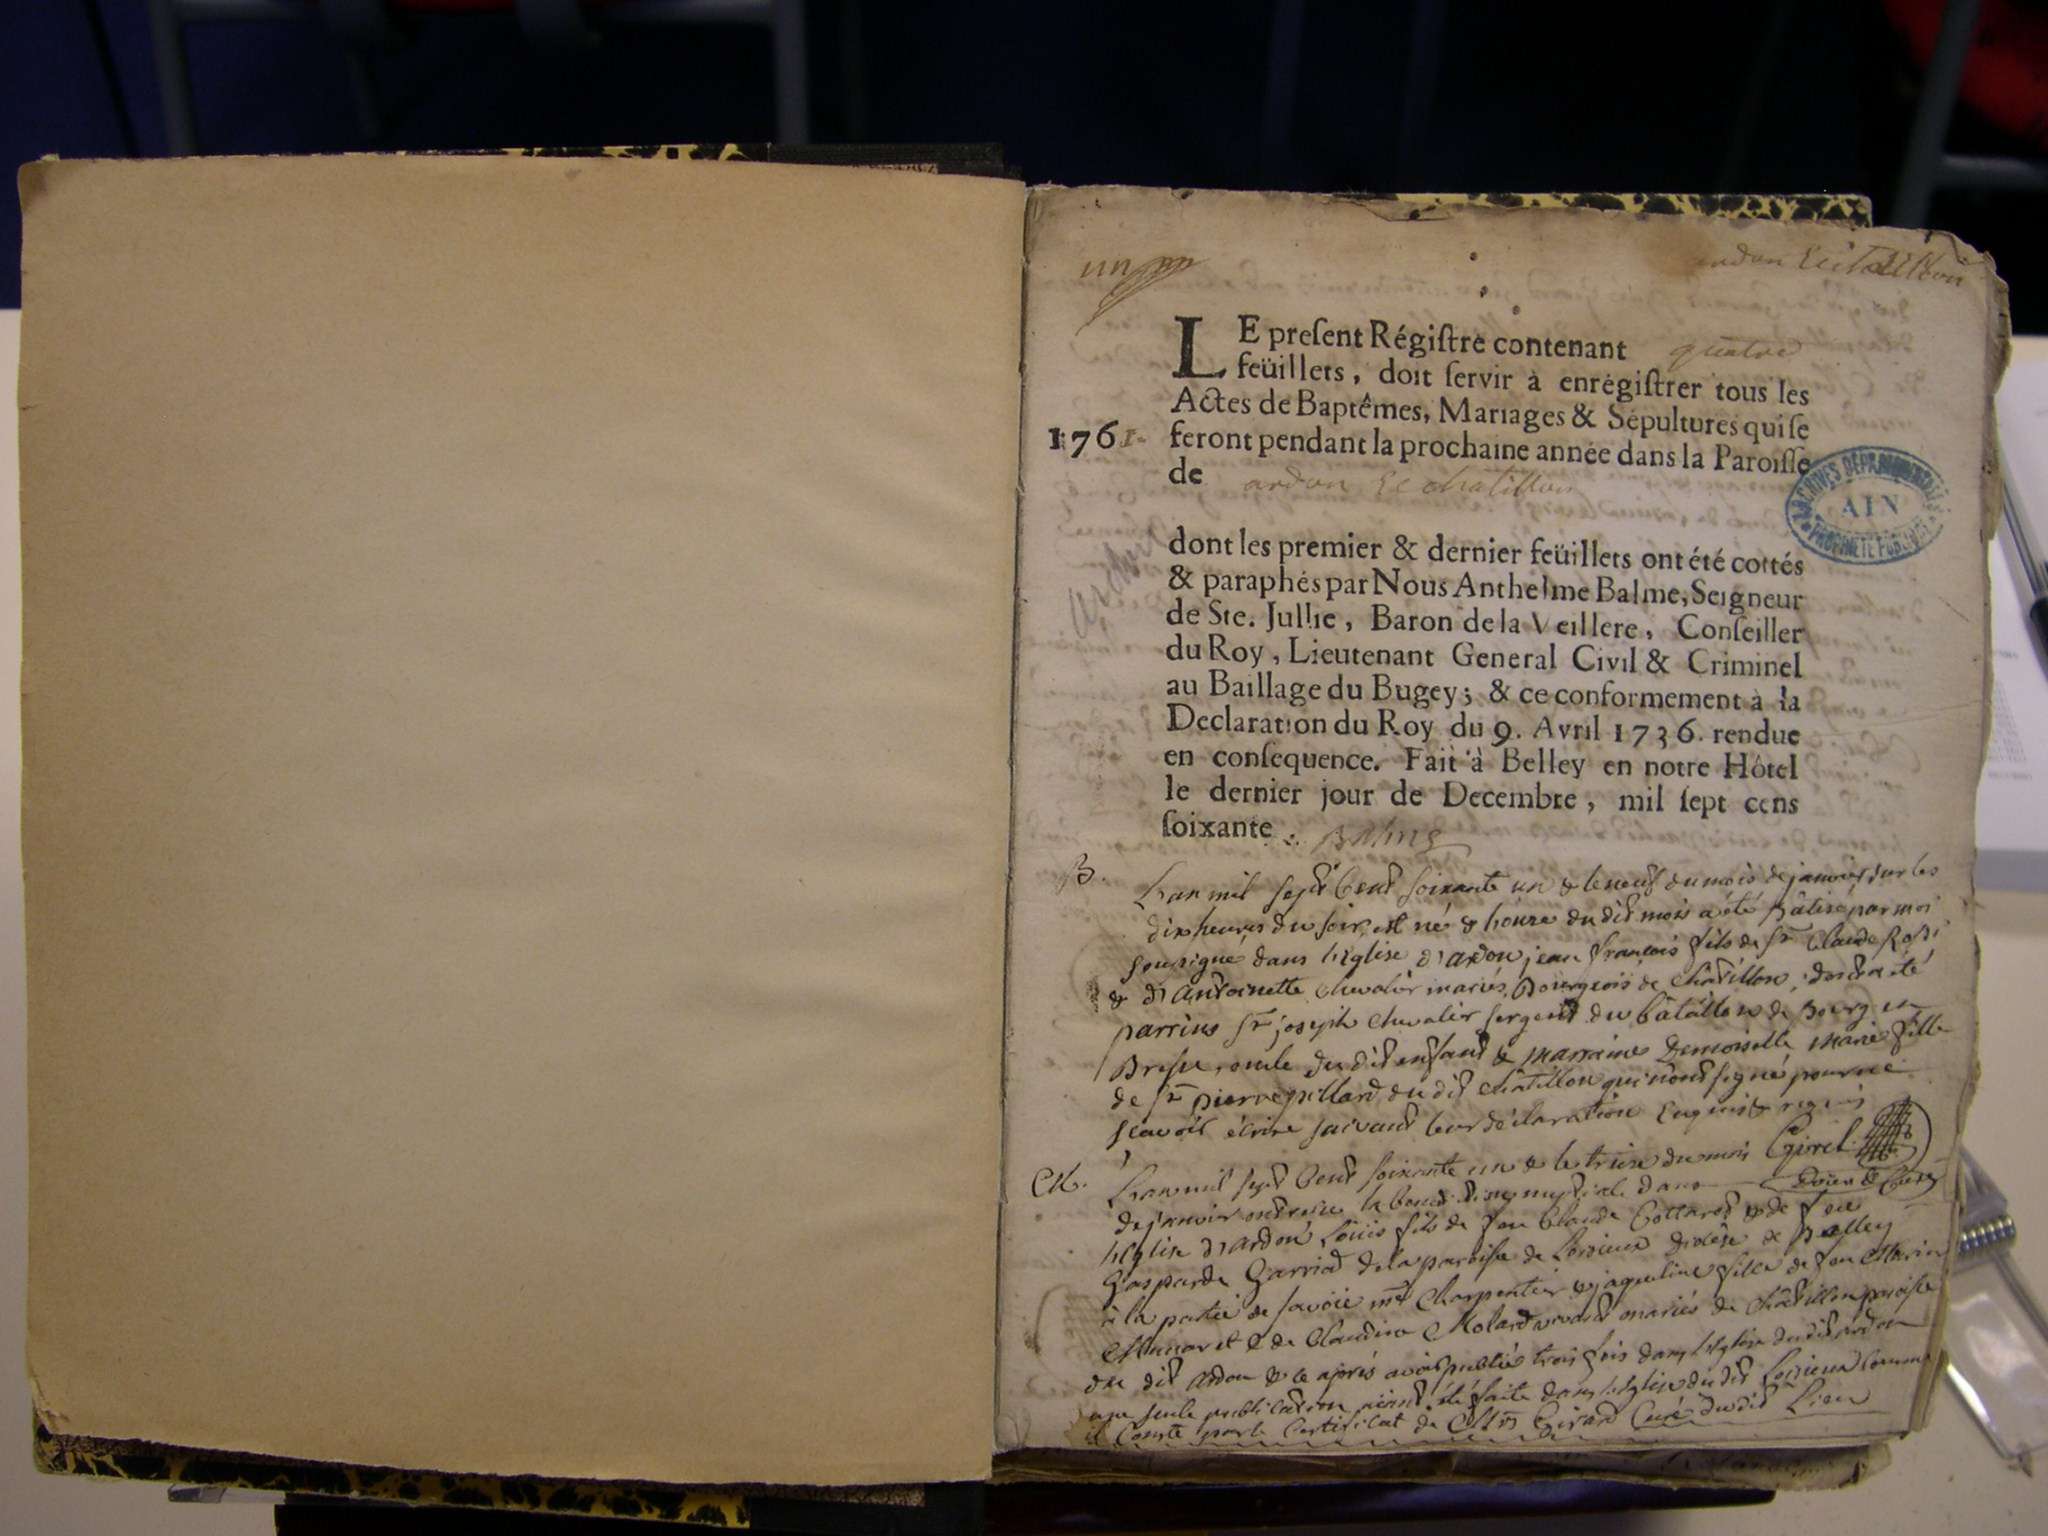 un
ardon & chatillon
LE preſent Régiſtre contenant quatre
feüillets, doit ſervir à enrégiſtrer tous les
Actes de Baptêmes, Mariages & Sépultures qui ſe
1761. feront pendant la prochaine année dans la Paroiſſe
de ardon & chatillon
ARCHIVES DÉPARTEMENTALES
AIN
PROPRIÉTÉ PUBLIQUE
dont les premier & dernier feüillets ont été cottés
& paraphés par Nous Anthelme Balme, Seigneur
de Ste. Jullie, Baron de la Veillere, Conſeiller
du Roy, Lieutenant General Civil & Criminel
au Baillage du Bugey; & ce conformement à la
Declaration du Roy du 9. Avril 1736. rendue
en conſequence. Fait à Belley en notre Hôtel
le dernier jour de Decembre, mil ſept cens
ſoixante. Balme
B. Lan mil sept cent soixante un & le neuf du mois de janvier sur les
dix heures du soir est né & honze du dit mois a été batisé par moi
sousigné dans l'église d'ardon jean françois fils de Sr Claude
& d'antoinette chevalier mariés, Bourgeois de Châtillon, dont a été
parrins Sr joseph chevalier sergent du bâtaillon de Bourg en
Bresse, oncle du dit enfant & marraine Demoiselle marie fille
de Sr pierre pillard du dit châtillon qui n'ont signé pour ne
scavoir écrire suivant leur déclaration enquis & requis
M. Lan mil sept cent soixante un & le treize du mois
de janvier ont reçu la benediction nuptiale dans
l'église d'ardon Loüis fils de feu Claude Collard & de feüe
Gasparde de la paroisse de diocèse de Belley
à la partie de savoie me charpentier & jaqueline fille de feu
& de Claudine Molard mariés de châtillon paroisse
du dit ardon & ce après avoir publié trois fois dans l'église du dit ardon
une seule publication aiant été faite dans l'église du dit comme
il conste par le certificat de Girard Curé du dit Lieu